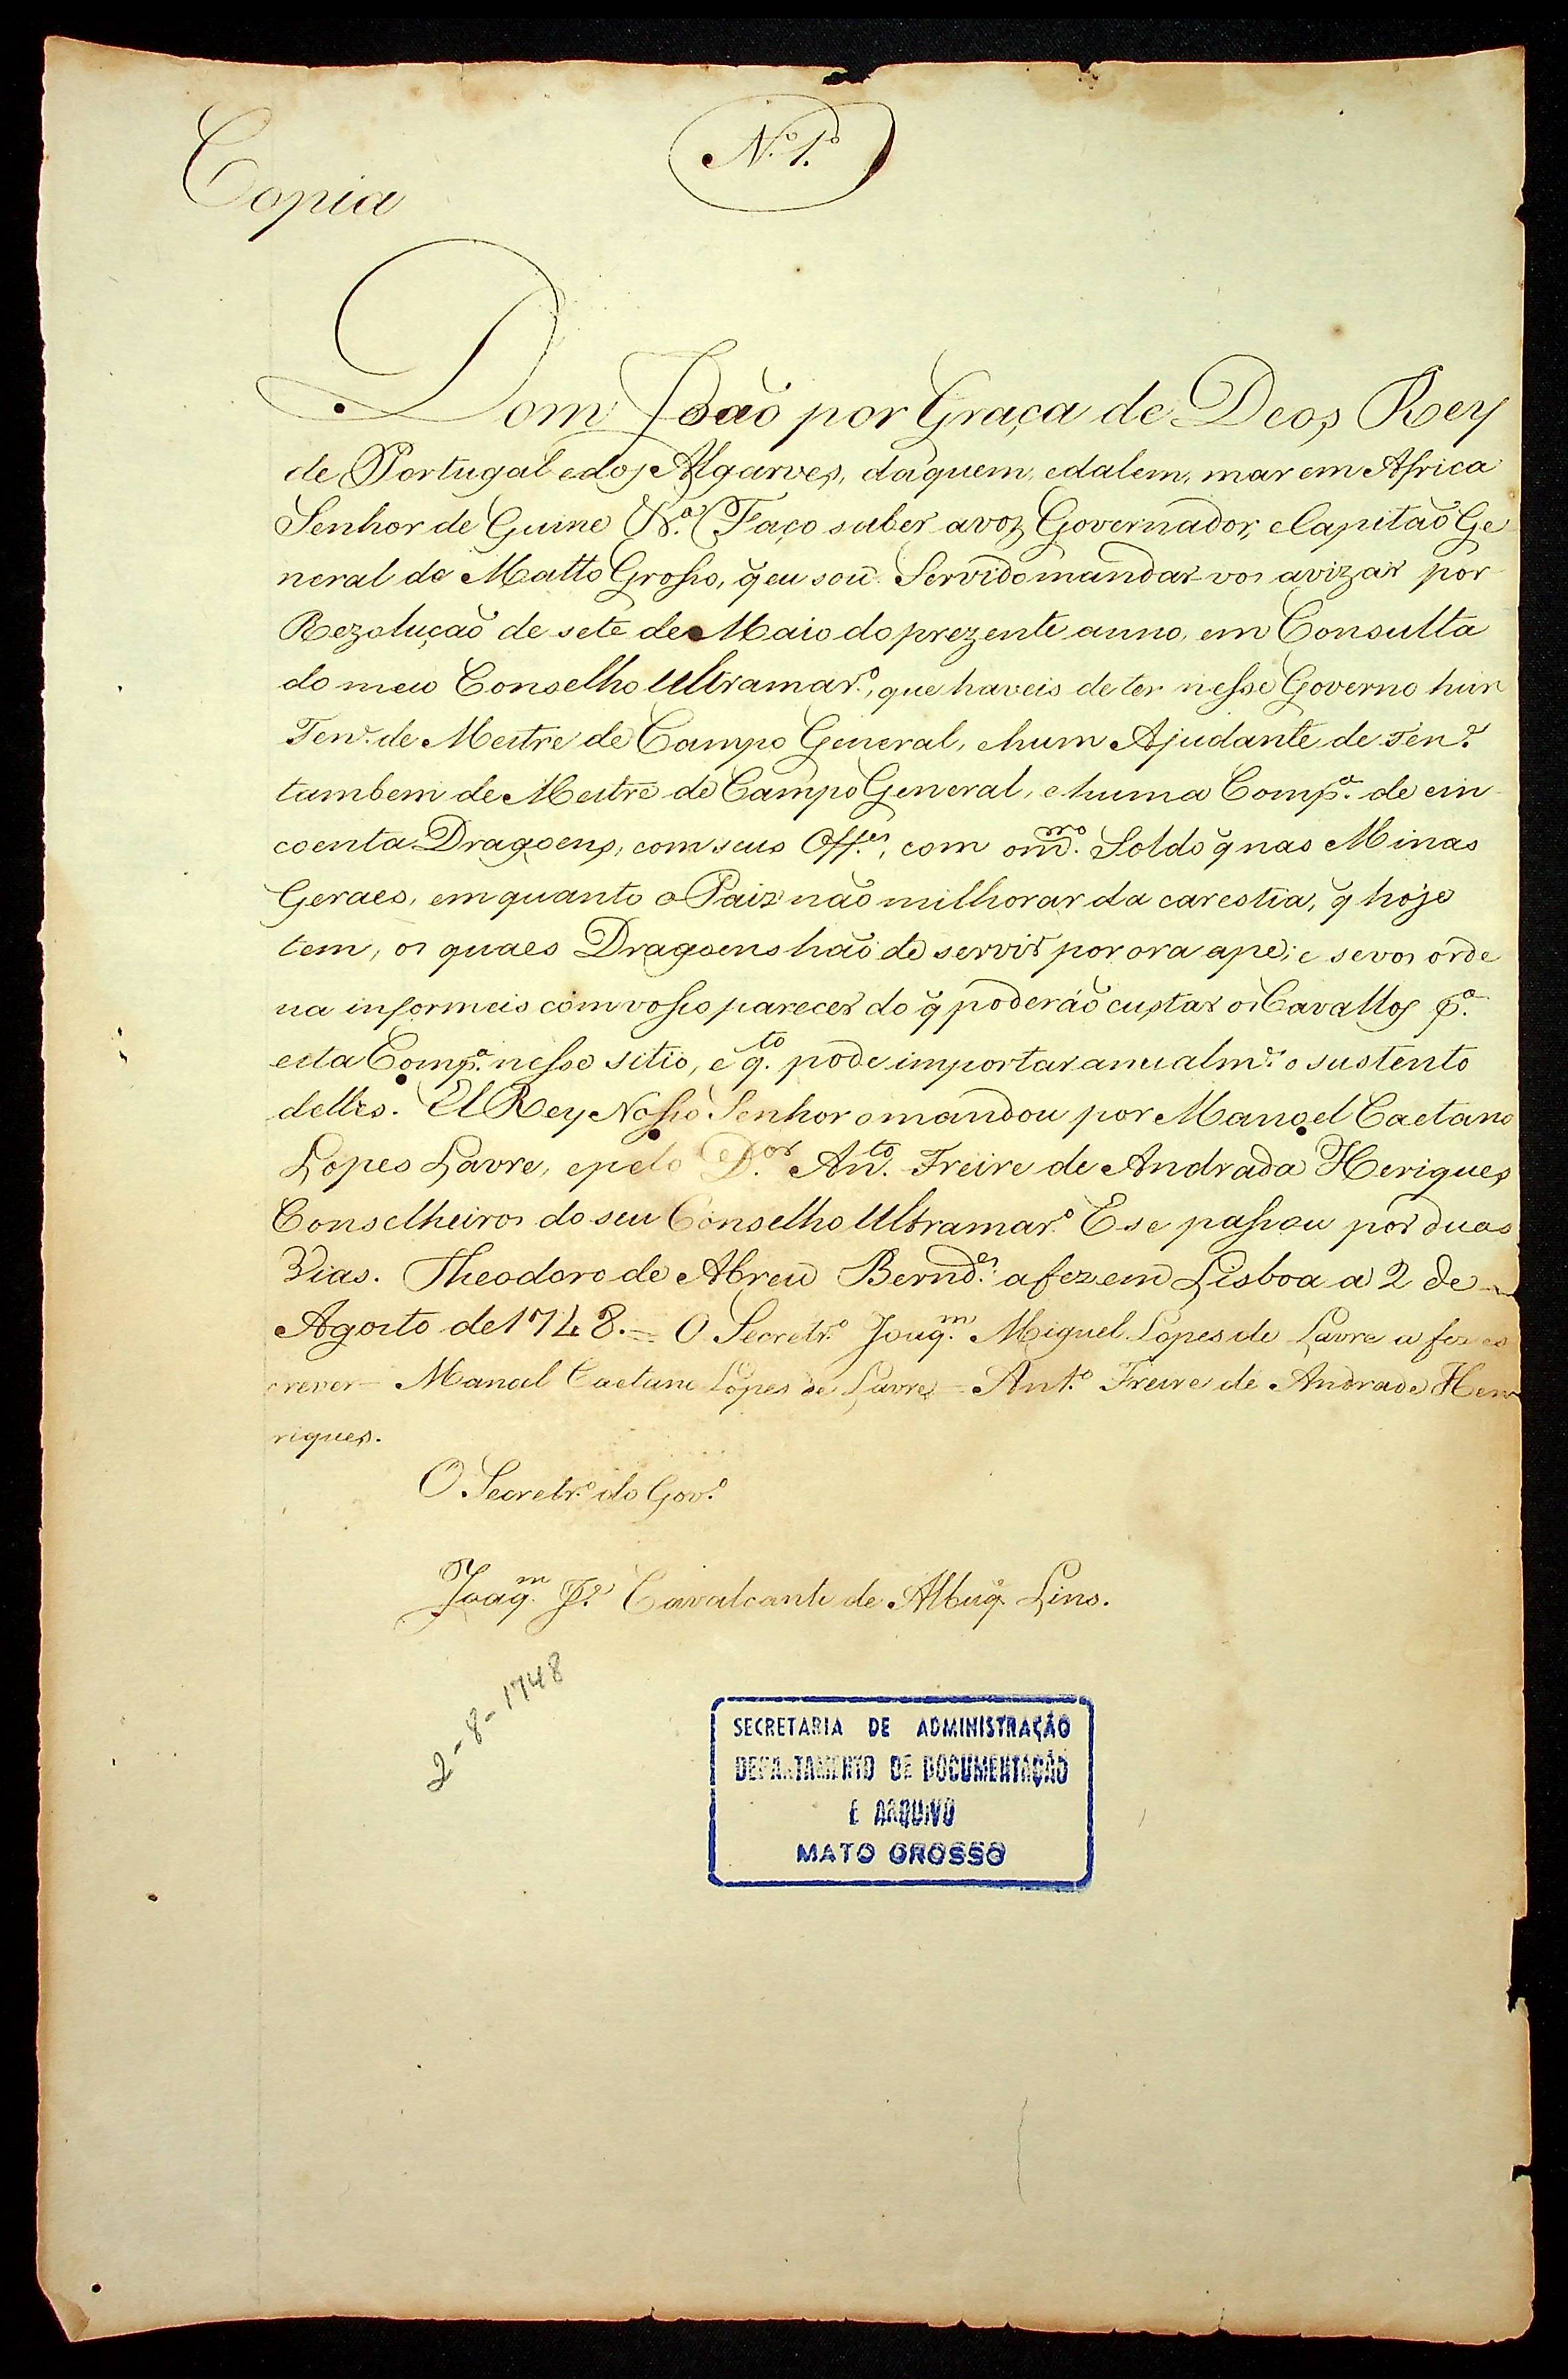 N.º 1.º
Copia
Dom João por Graça de Deos Rey
de Portugal e dos Algarves, daquem, e dalem, mar em Africa
Senhor de Guine &.ª Faço saber a vos Governador, e Capitão Ge
neral de Matto Grosso, q̃ eu sou Servido mandar-vos avizar por
Rezolução de sete de Maio do prezente anno, em Consulta
do meu Conselho Ultramar.º, que haveis de ter nesse Governo hum
Ten.e de Mestre de Campo General, e hum Ajudante de Ten.e
tambem de Mestre de Campo General, e huma Comp.ª de cin
coenta Dragoens, com seus Off.es, com o m.mo Soldo q̃ nas Minas
Geraes, em quanto o Paiz não milhorar da carestia, q̃ hoje
tem, os quaes Dragoens hão de servir por ora a pe; e se vos orde
na informeis com vosso parecer do q̃ poderáõ custar os Cavallos p.ª
esta Comp.ª nesse sitio, e q.to pode importar anualm.e o sustento
delles. El Rey Nosso Senhor o mandou por Manoel Caetano
Lopes Lavre, e pelo D.or An.to Freire de Andrada Heriques
Conselheiros do seu Conselho Ultramar.º E se passou por duas
Vias. Theodoro de Abreu Bernd.es a fez em Lisboa a 2 de
Agosto de 1748. = O Secretr.º Joaq.m Miguel Lopes de Lavre a fez es
crever = Manoel Caetano Lopes de Lavre = Ant.º Freire de Andrade Hen
riques.
O Secretr.º do Gov.º
Joaq.m F.e Cavalcante de Albuq.e Lins.
2-8-1748
SECRETARIA DE ADMINISTRAÇÃO
DEPARTAMENTO DE DOCUMENTAÇÃO
E ARQUIVO
MATO GROSSO